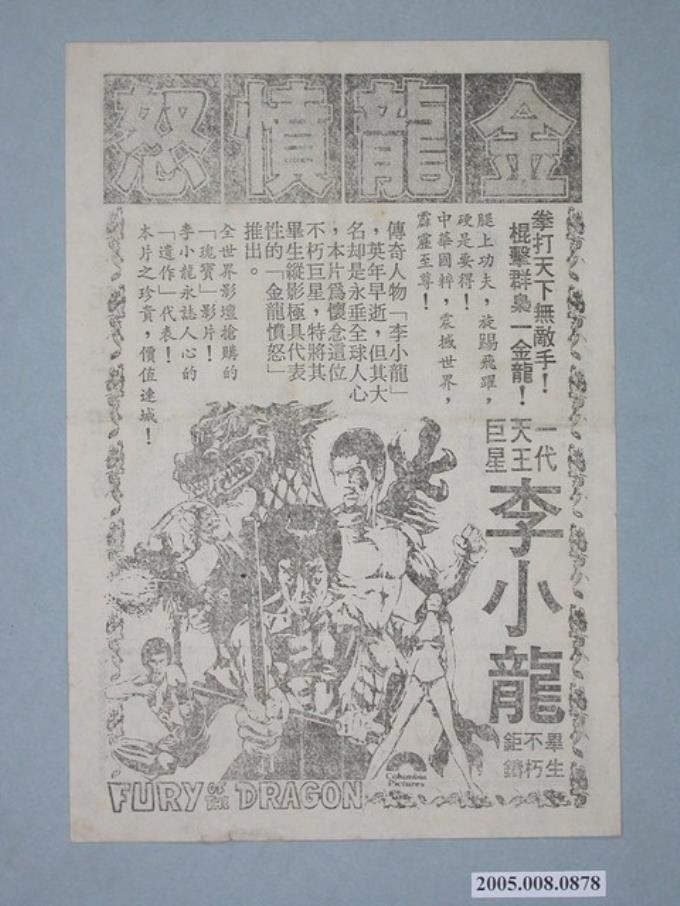 金龍憤怒
拳打天下無敵手！
棍擊群梟一金龍！
腿上功夫，旋踢飛躍，
硬是要得！
中華國粹，震撼世界，
霹靂至尊！
傳奇人物「李小龍」
，英年早逝，但其大
名却是永垂全球人心
，本片爲懷念這位
不朽巨星，特將其
畢生縱影極具代表
性的「金龍憤怒」
推出。
全世界影壇搶購的
「瑰寶」影片！
李小龍永誌人心的
「遺作」代表！
本片之珍貴，價值連城！
一代
天王
巨星
李小龍
畢生
不朽
鉅鑄
FURY OF THE DRAGON
Columbia
Pictures
2005.008.0878